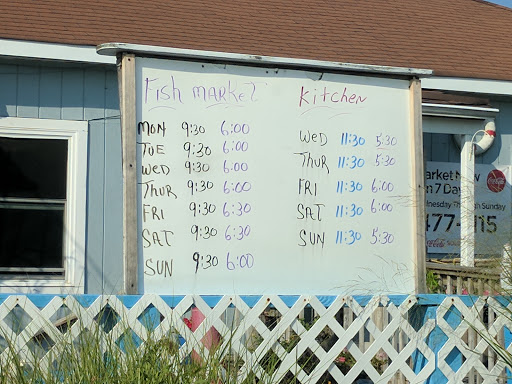 Fish market
MON 9:30 6:00
TUE 9:30 6:00
WED 9:30 6:00
THUR 9:30 6:00
FRI 9:30 6:30
SAT 9:30 6:30
SUN 9:30 6:00
Kitchen
WED 11:30 5:30
THUR 11:30 5:30
FRI 11:30 6:00
SAT 11:30 6:00
SUN 11:30 5:30
7 Da
Sunday
Coca-Cola